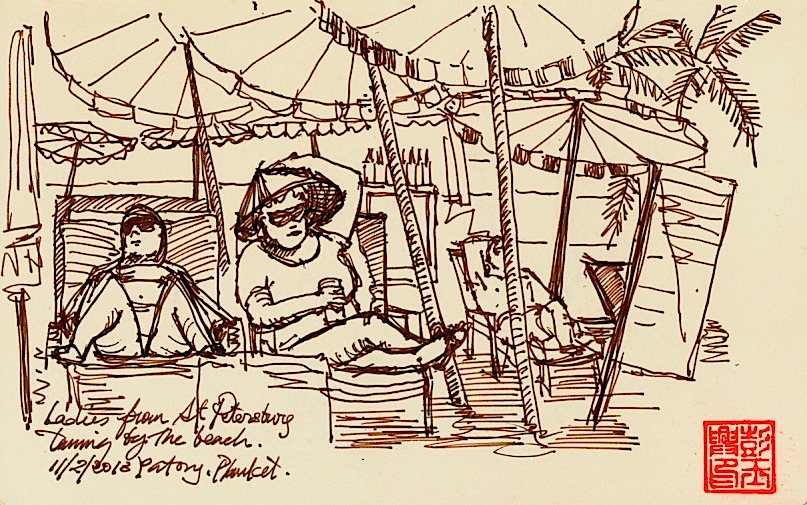 Ladies from St Petersburg
Tanning by the beach.
11/2/2013 Patong. Phuket.